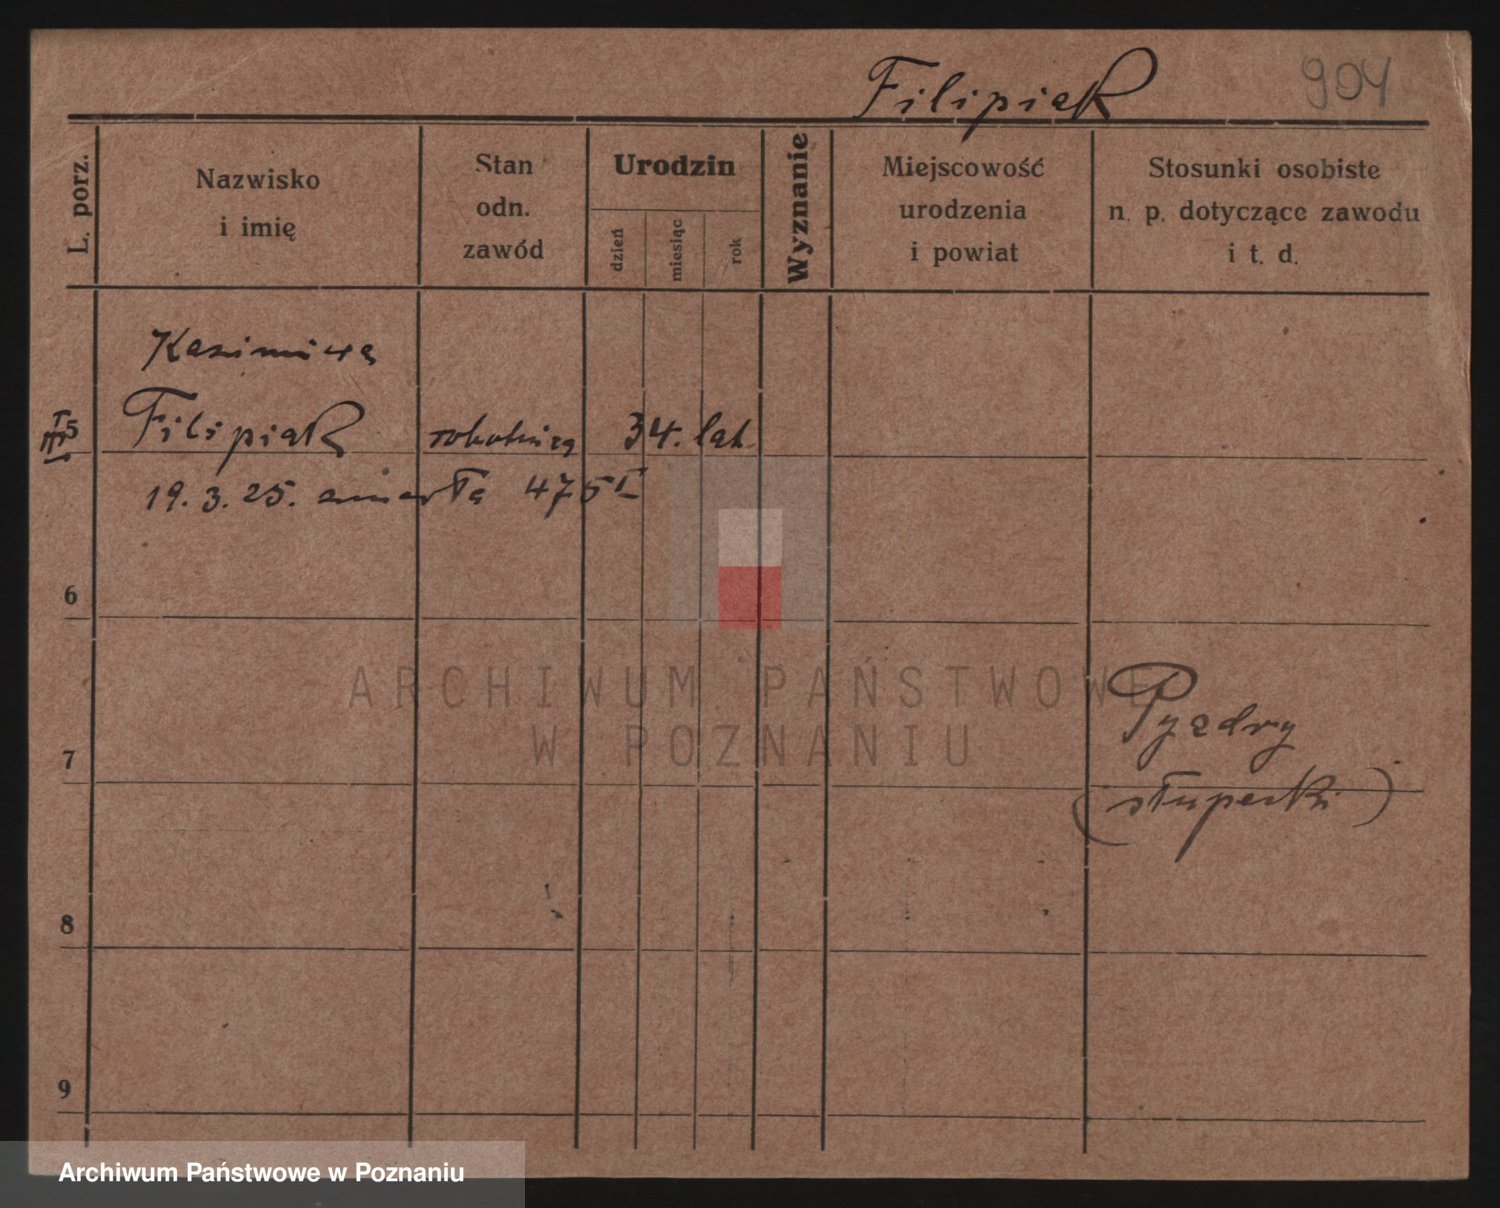 Filipiak 904
L. porz.
Nazwisko
i imię
Stan
odn.
zawód
Urodzin
dzień
miesiąc
rok
Wyznanie
Miejscowość
urodzenia
i powiat
Stosunki osobiste
n. p. dotyczące zawodu
i t. d.
Kazimiera
5 Filipiak robotnica 34. lat
19.3.25. zmarła 475 I
6
7
Pyzdry
(słupecki)
8
9
ARCHIWUM PAŃSTWOWE
W POZNANIU
Archiwum Państwowe w Poznaniu